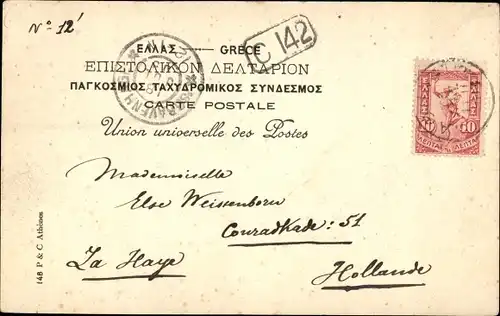 No 12'
C 142
ΕΛΛΑΣ — GRECE
ΕΠΙΣΤΟΛΙΚΟΝ ΔΕΛΤΑΡΙΟΝ
ΠΑΓΚΟΣΜΙΟΣ ΤΑΧΥΔΡΟΜΙΚΟΣ ΣΥΝΔΕΣΜΟΣ
CARTE POSTALE
Union universelle des Postes
ΕΛΛΑΣ
ΕΛΛΑΣ
10 10
ΛΕΠΤΑ ΛΕΠΤΑ
Mademoiselle
Else Weissenborn
Conradkade: 51
La Haye
Hollande
148 P & C Athènes